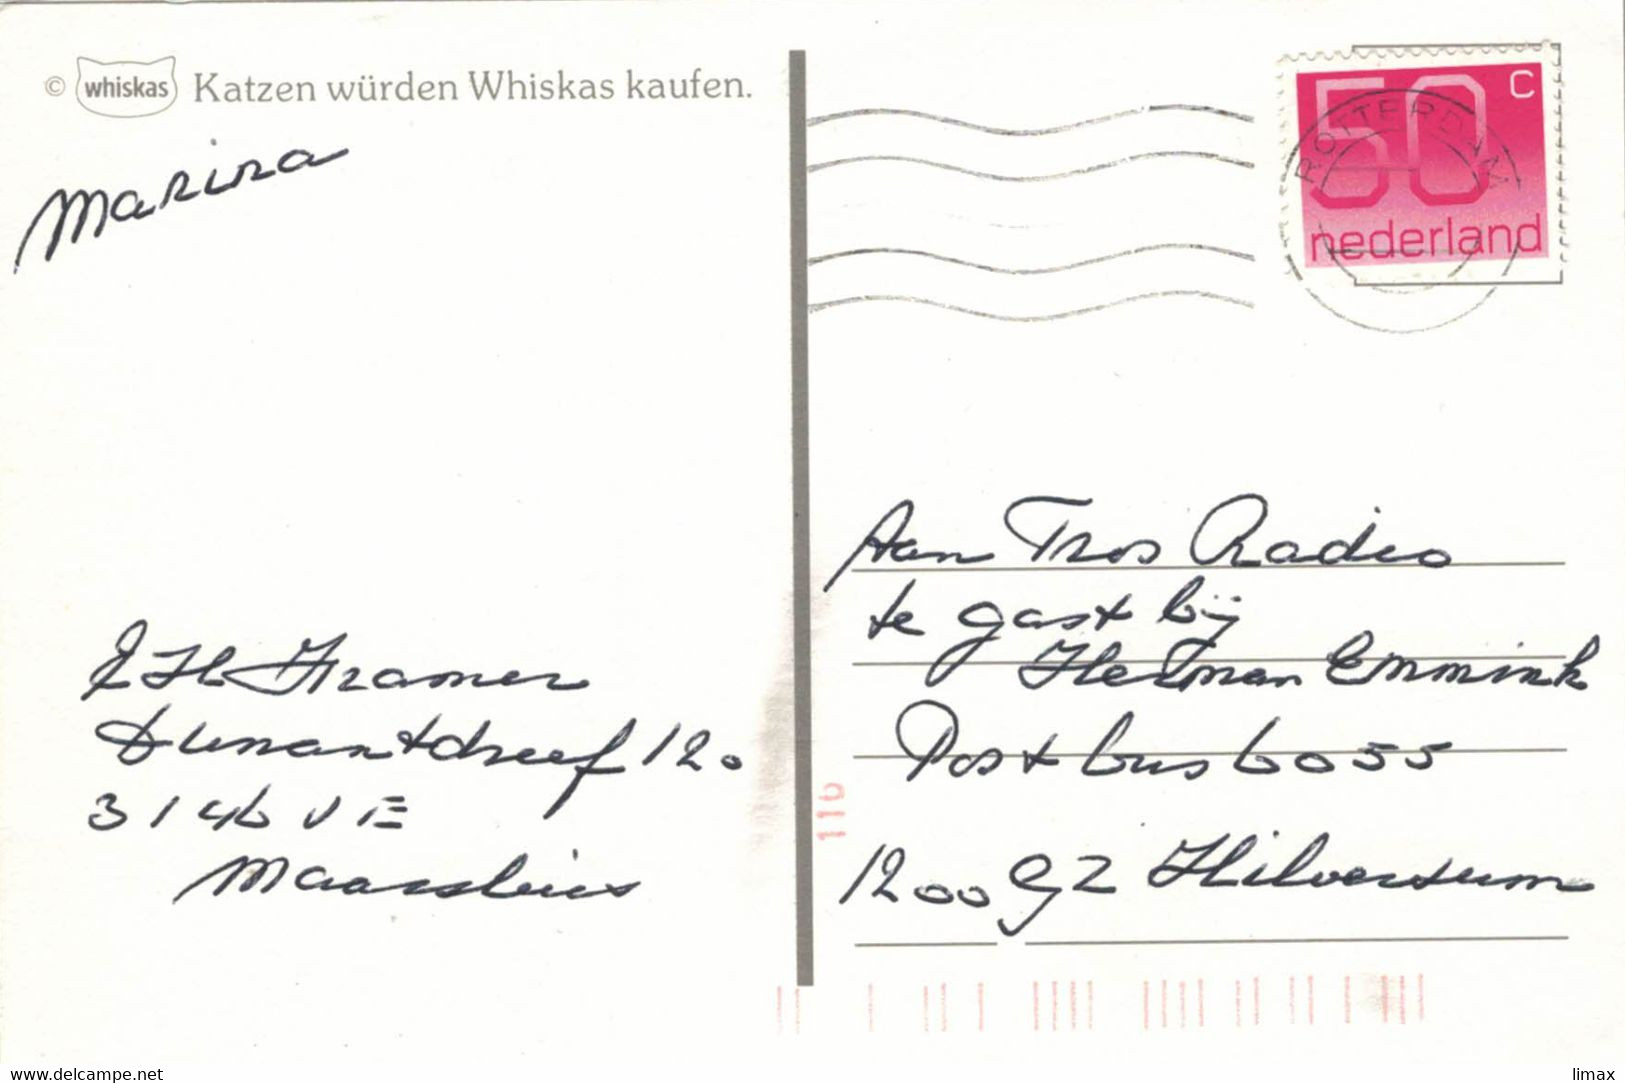 © whiskas Katzen würden Whiskas kaufen.
Marina
Kramer
Dunantdreef 120
3146 VE
Maassluis
50 c
nederland
ROTTERDAM
Aan Tros Radio
te gast bij
Herman Emmink
Postbus 6055
1200 GZ Hilversum
116
www.delcampe.net
limax